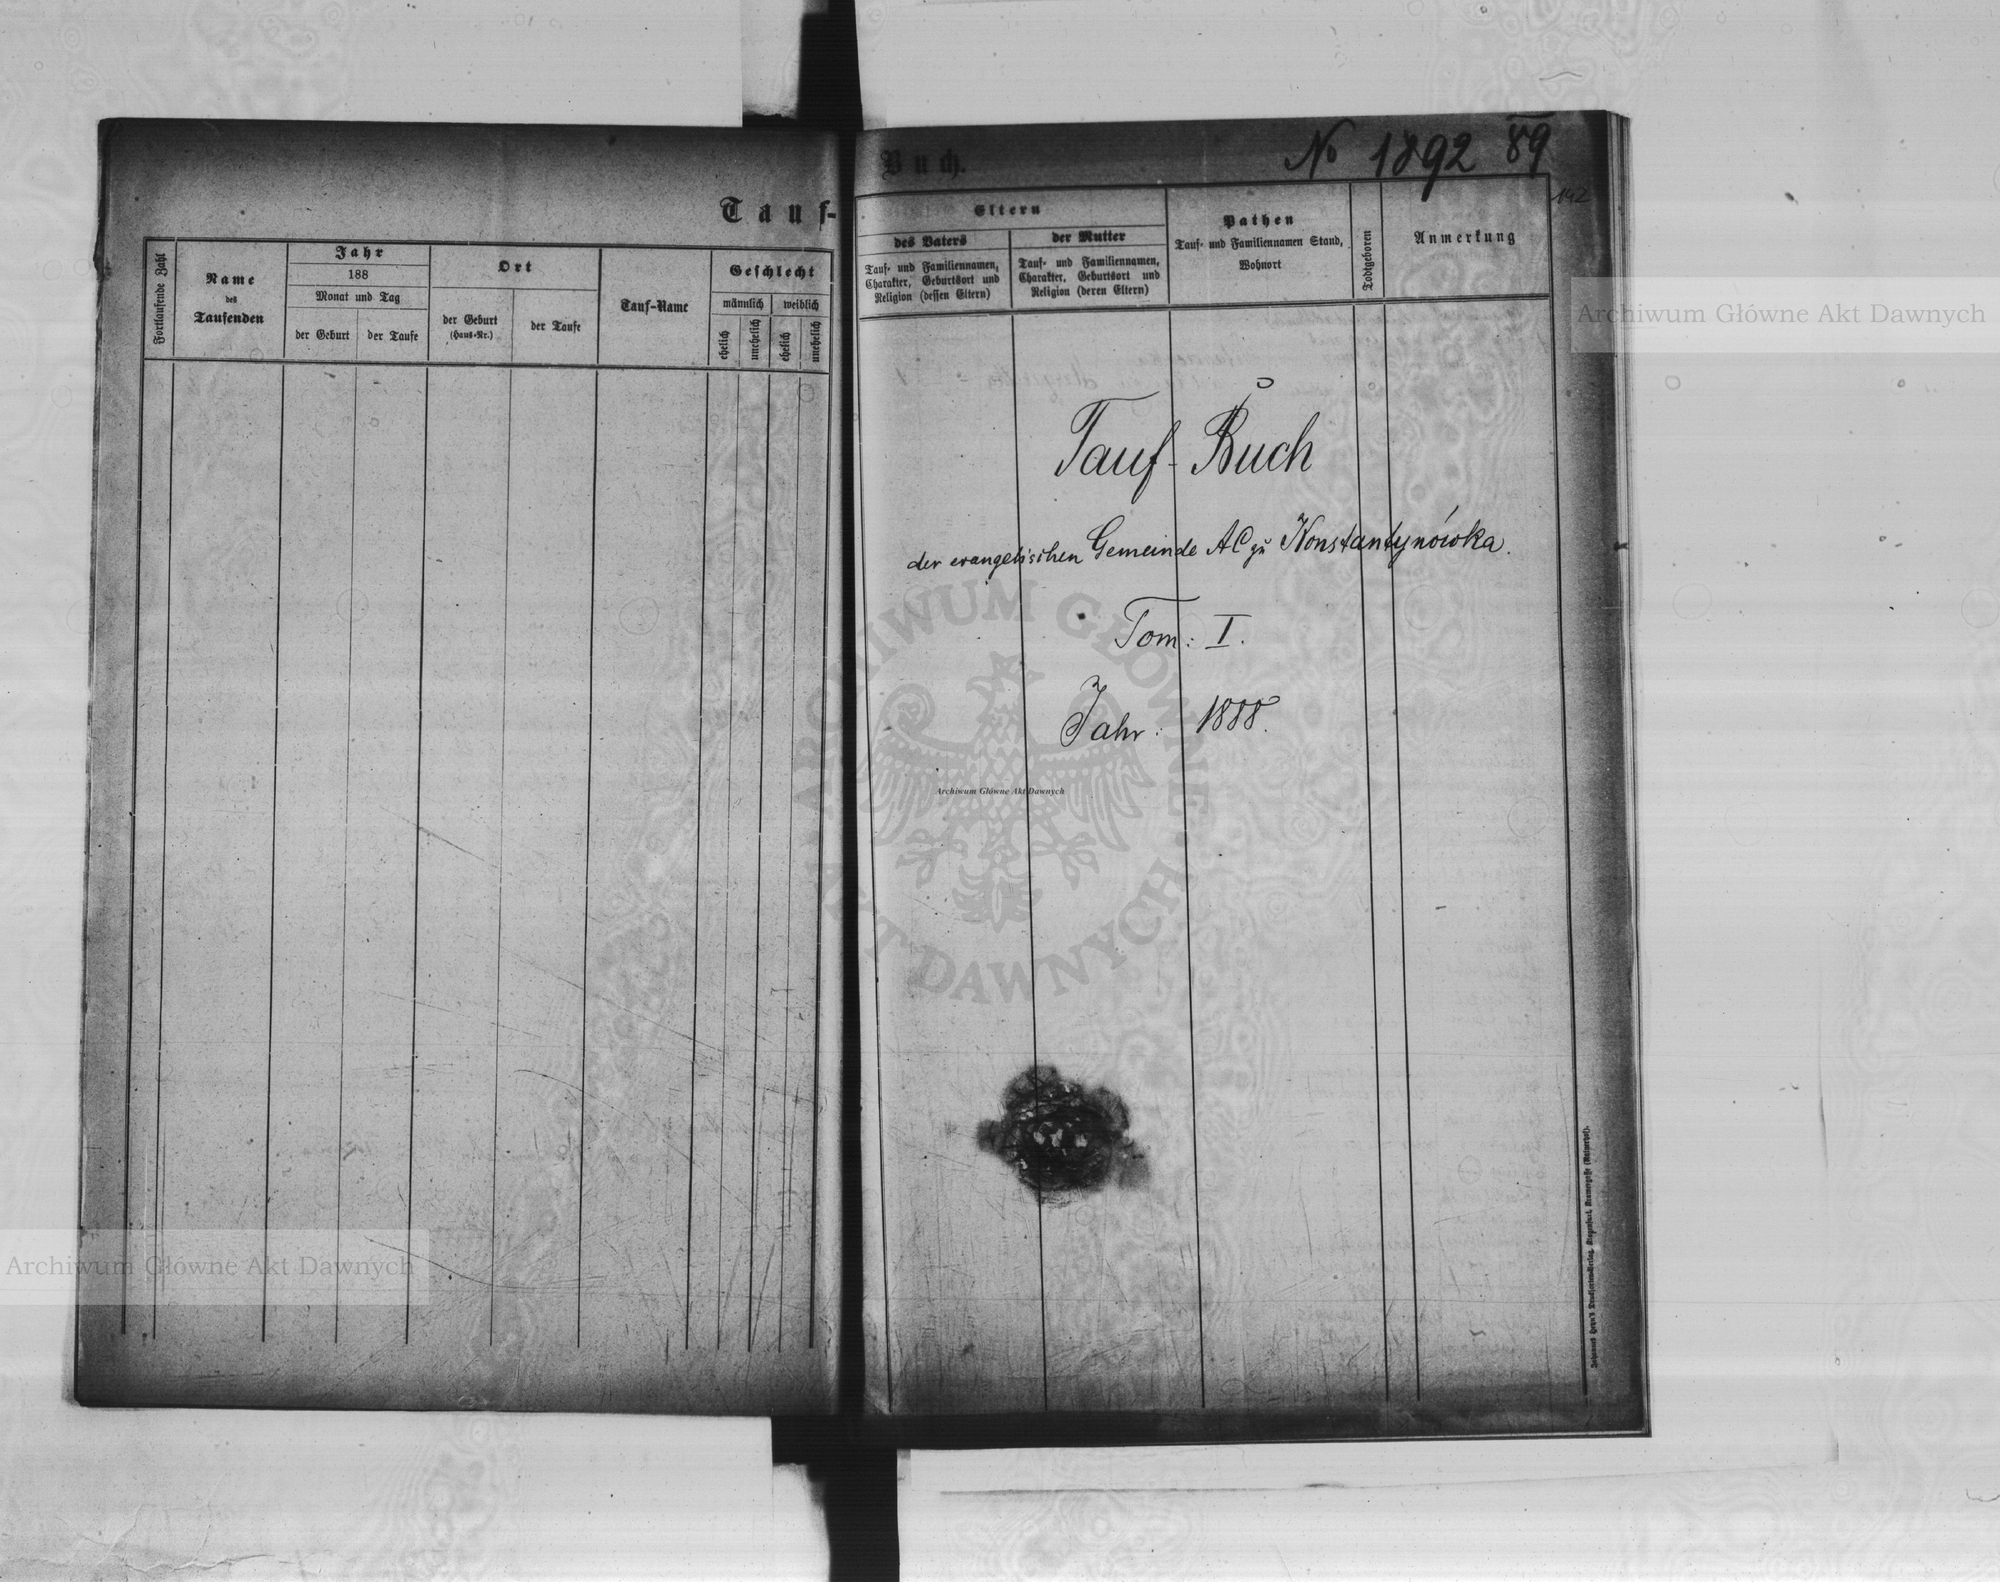 Tauf-
Fortlaufende Zahl
Name
des
Taufenden
Jahr
188
Monat und Tag
der Geburt
der Taufe
Ort
der Geburt
(Haus-Nr.)
der Taufe
Tauf-Name
Geschlecht
männlich
weiblich
ehelich
unehelich
ehelich
unehelich
Buch.
No 1892 89
142
Eltern
des Vaters
Tauf- und Familiennamen,
Charakter, Geburtsort und
Religion (dessen Eltern)
der Mutter
Tauf- und Familiennamen,
Charakter, Geburtsort und
Religion (deren Eltern)
Pathen
Tauf- und Familiennamen Stand,
Wohnort
Todtgeboren
Anmerkung
Tauf-Buch
der evangelischen Gemeinde AC zu Konstantynówka.
Tom: I.
Jahr: 1888.
Archiwum Główne Akt Dawnych
ARCHIWUM GŁÓWNE AKT DAWNYCH
Archiwum Główne Akt Dawnych
Archiwum Główne Akt Dawnych